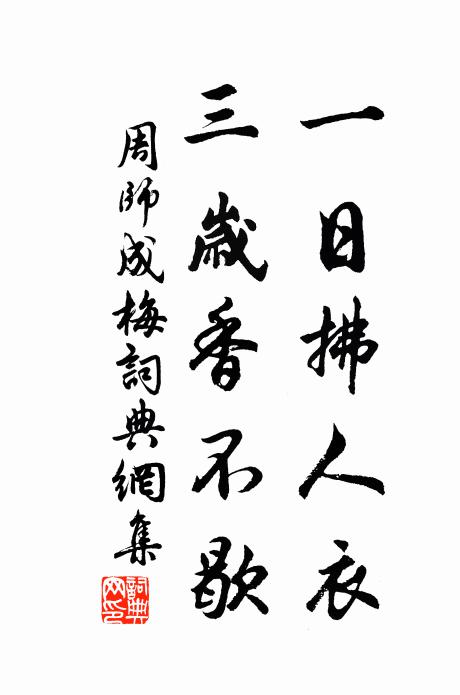 一日拂人衣
三歲香不歇
周師成梅詞典網集
詞典
网印